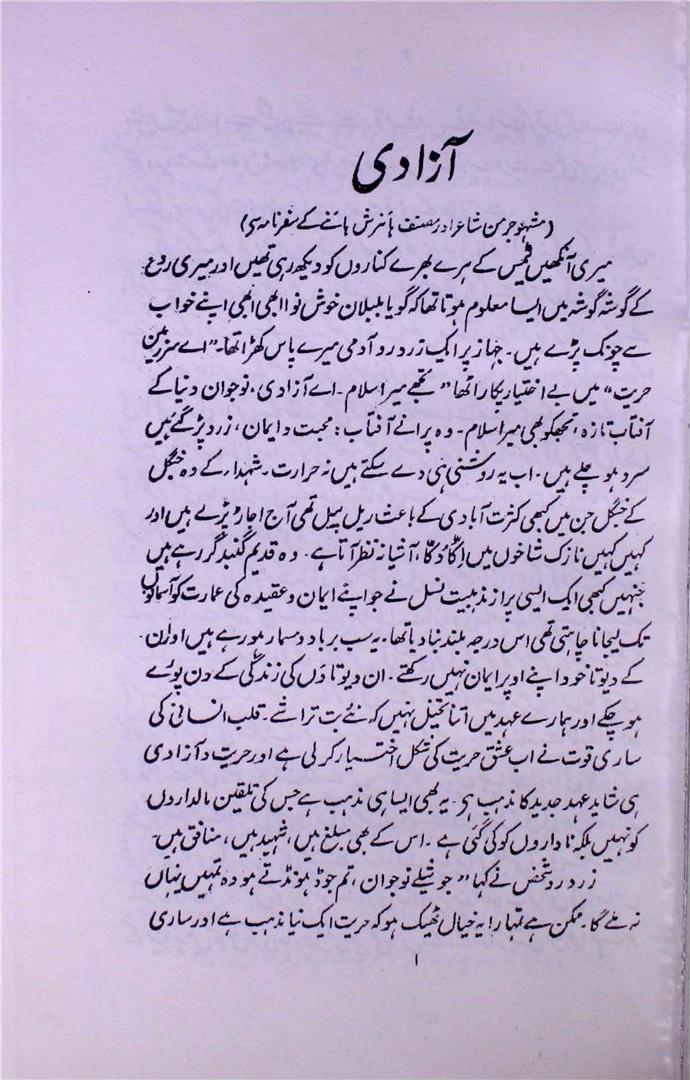 آزادی
(مشہور جرمن شاعر اور مصنف ہانرش ہائنے کے سفرنامہ سے)
میری آنکھیں ٹیمس کے ہرے بھرے کناروں کو دیکھ رہی تھیں اور میری روح
کے گوشہ گوشہ میں ایسا معلوم ہوتا تھا کہ گویا بلبلان خوش نوا ابھی ابھی اپنے خواب
سے چونک پڑے ہیں۔ جہاز پر ایک زرد رو آدمی میرے پاس کھڑا تھا۔ "اے سرزمین
حریت" میں بے اختیار پکار اٹھا "تجھے میرا سلام۔ اے آزادی، نوجوان دنیا کے
آفتاب تازہ، تجھکو بھی میرا سلام۔ وہ پرانے آفتاب: محبت و ایمان، زرد پڑ گئے ہیں
سرد ہو چلے ہیں۔ اب یہ روشنی ہی دے سکتے ہیں نہ حرارت۔ شہداء کے وہ جنگل
کے جنگل جن میں کبھی کثرت آبادی کے باعث ریل پیل تھی آج اجاڑ پڑے ہیں اور
کہیں کہیں نازک شاخوں میں اِکّا دُکّا، آشیانہ نظر آتا ہے۔ وہ قدیم گنبد گر رہے ہیں
جنہیں کبھی ایک ایسی پر از مذہبیت نسل نے جو اپنے ایمان و عقیدہ کی عمارت کو آسمانوں
تک لیجانا چاہتی تھی اس درجہ بلند بنا دیا تھا۔ یہ سب برباد و مسمار ہو رہے ہیں اور اُن
کے دیوتا خود اپنے اوپر ایمان نہیں رکھتے۔ ان دیوتاؤں کی زندگی کے دن پورے
ہو چکے اور ہمارے عہد میں اتنا تخیل نہیں کہ نئے بت تراشے۔ قلب انسانی کی
ساری قوت نے اب عشق حریت کی شکل اختیار کر لی ہے اور حریت و آزادی
ہی شاید عہد جدید کا مذہب ہو۔ یہ بھی ایسا ہی مذہب ہے جس کی تلقین مالداروں
کو نہیں بلکہ ناداروں کو کی گئی ہے۔ اس کے بھی مبلغ ہیں، شہید ہیں، منافق ہیں۔
زرد رو شخص نے کہا "جوشیلے نوجوان، تم جو ڈھونڈتے ہو وہ تمہیں یہاں
نہ ملے گا۔ ممکن ہے تمہارا یہ خیال ٹھیک ہو کہ حریت ایک نیا مذہب ہے اور ساری
۱